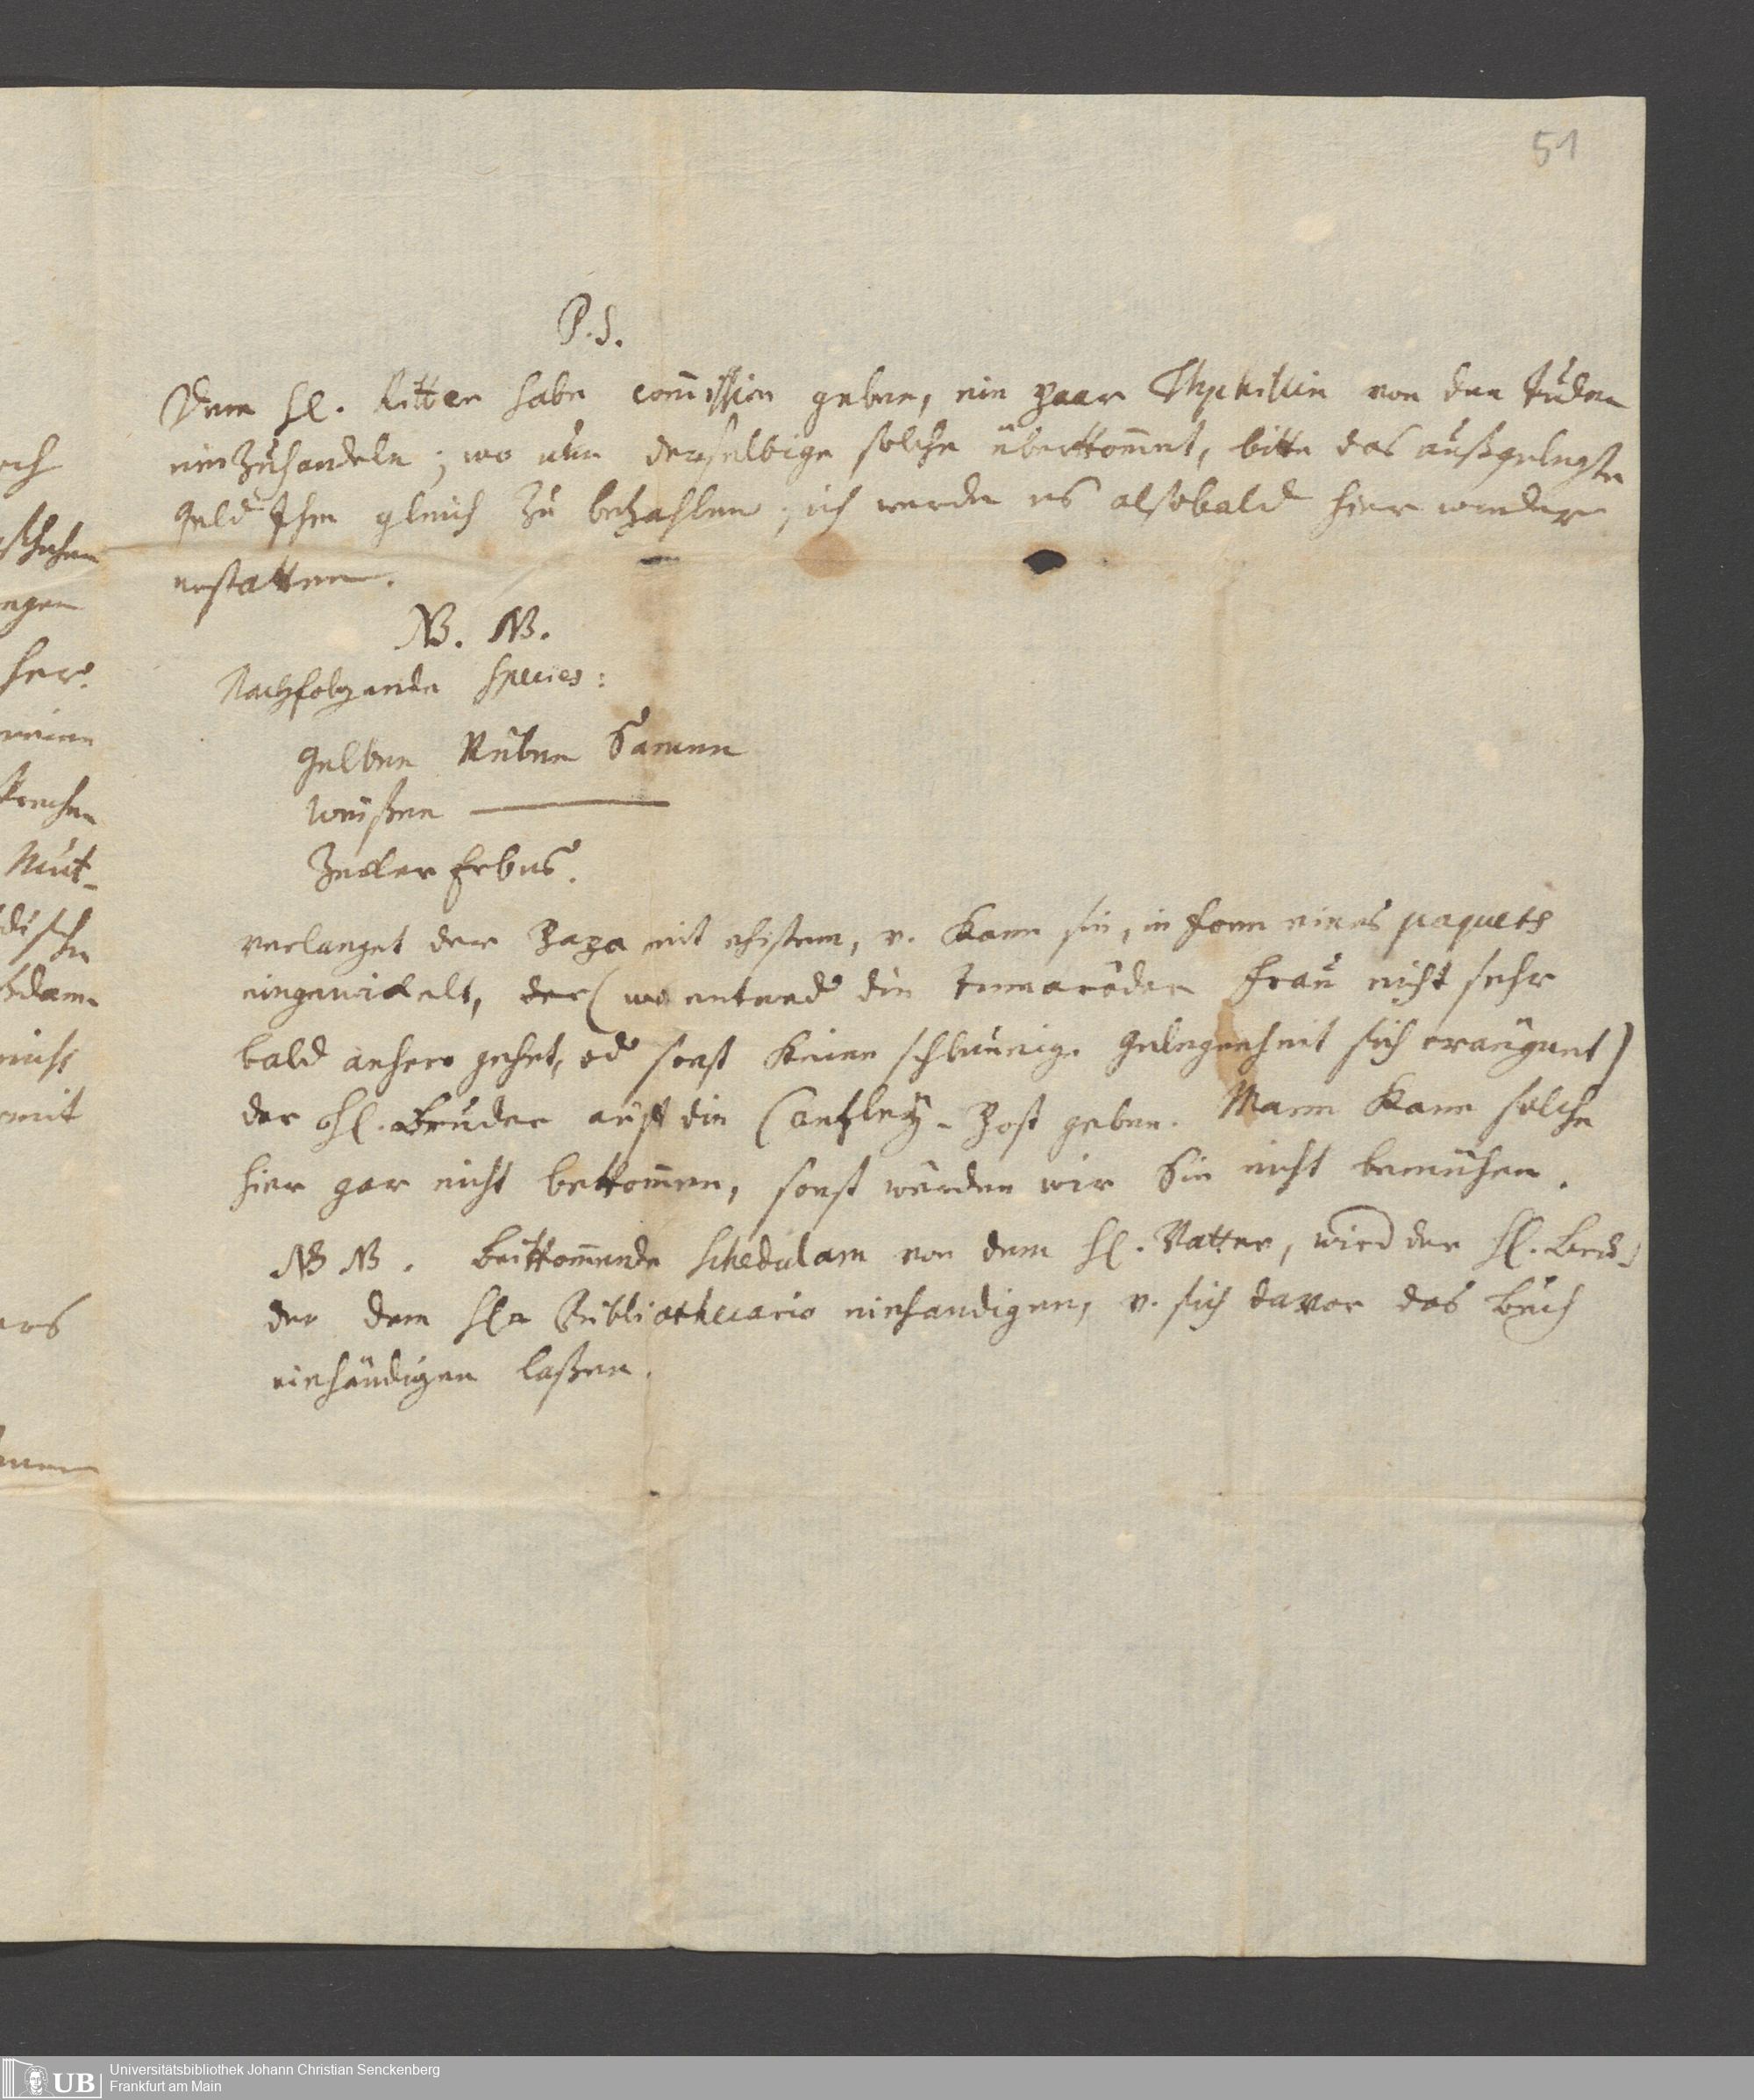 51
P. S.
Dem Hl. Ritter habe commission geben, ein paar Thphillin von den Juden
einzuhandeln; wo nun derselbige solche überkommet, bitte das außgelegte
Geld Ihm gleich zu bezahlen; ich werde es alsobald hier wieder
erstatten.
NB. NB.
Nachfolgende Species:
Gelben Rüben Samen
Weißen ———
Zucker Erbes.
verlanget der Papa mit ehistem, v. kann sie, in form eines paquets
eingewickelt, der (wo entwed. die Frau nicht sehr
bald anhero gehet, od. sonst keine schleunige Gelegenheit sich eräugnet)
der Hl. Bruder auff die Cantzley-Post geben. Mann kann solche
hier gar nicht bekommen, sonst würden wir Sie nicht bemühen.
NB NB. Beikommende Schedulam von dem Hl. Vatter, wird der Hl. Bru-
der dem Hln Bibliothecario einhandigen, v. sich davor das buch
einhändigen laßen.
och
ngen
her.
meine
Mut-
nicht
mit
ers
UB
Universitätsbibliothek Johann Christian Senckenberg
Frankfurt am Main